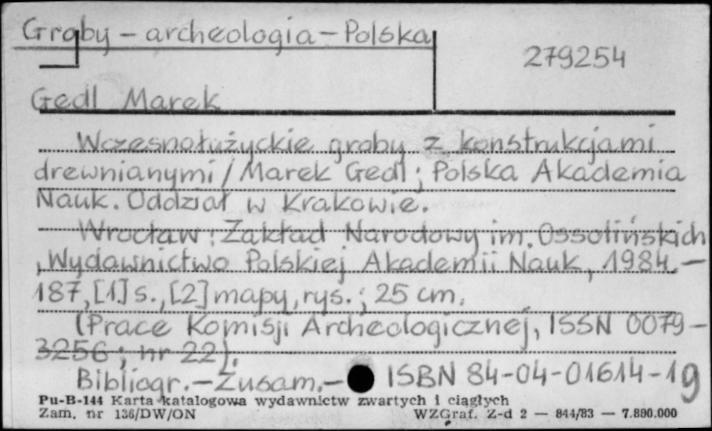 Groby - archeologia - Polska
279254
Gedl Marek
Wczesnołużyckie groby z konstrukcjami
drewnianymi / Marek Gedl ; Polska Akademia
Nauk. Oddział w Krakowie.
Wrocław : Zakład Narodowy im. Ossolińskich
, Wydawnictwo Polskiej Akademii Nauk, 1984. —
187, [1] s., [2] mapy, rys. ; 25 cm.
(Prace Komisji Archeologicznej, ISSN 0079-
3256 ; nr 22).
Bibliogr. - Zusam. - ISBN 84-04-01614-19
Pu-B-144 Karta katalogowa wydawnictw zwartych i ciągłych
Zam. nr 136/DW/ON WZGraf. Z-d 2 — 844/83 — 7.890.000